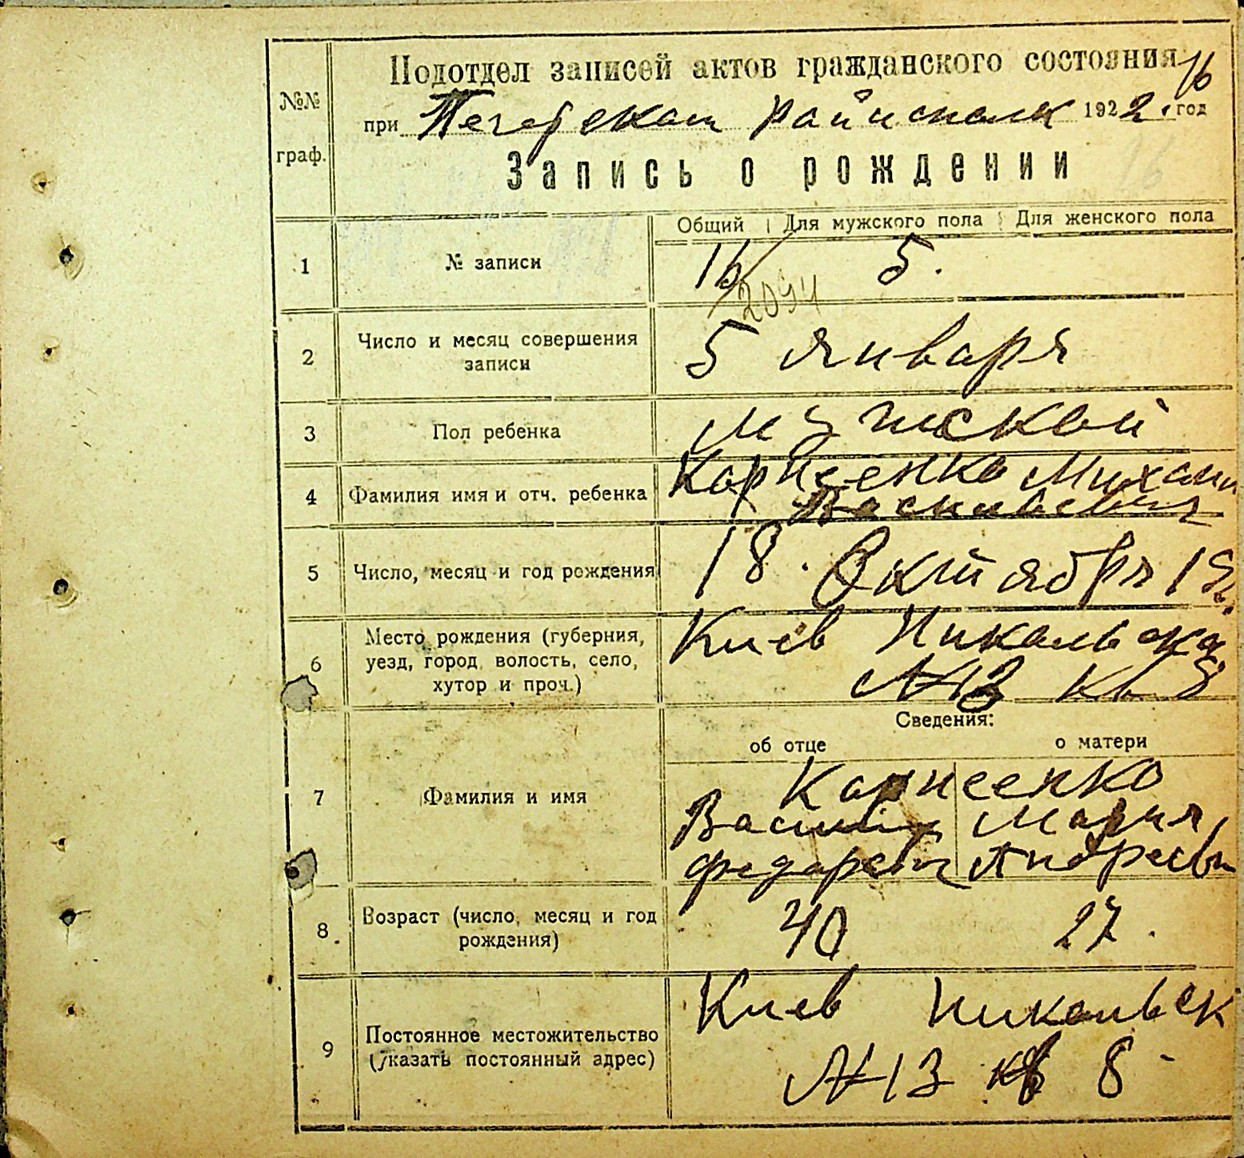 Подотдел записей актов гражданского состояния
16
№№ граф.
при Печерском Райисполк 1922. год
Запись о рождении
16
Общий Для мужского пола Для женского пола
1 № записи 16 5.
2094
2 Число и месяц совершения записи 5 января
3 Пол ребенка мужской
4 Фамилия имя и отч. ребенка Михаил
Васильевич
5 Число, месяц и год рождения 18. Октября 192
6 Место рождения (губерния, уезд, город, волость, село, хутор и проч.) Киев Никольска
№13 кв 8
Сведения:
об отце о матери
7 Фамилия и имя
Василий Мария
Андреевн
8 Возраст (число, месяц и год рождения) 40 27.
9 Постоянное местожительство (указать постоянный адрес) Киев Никольск
№13 кв 8